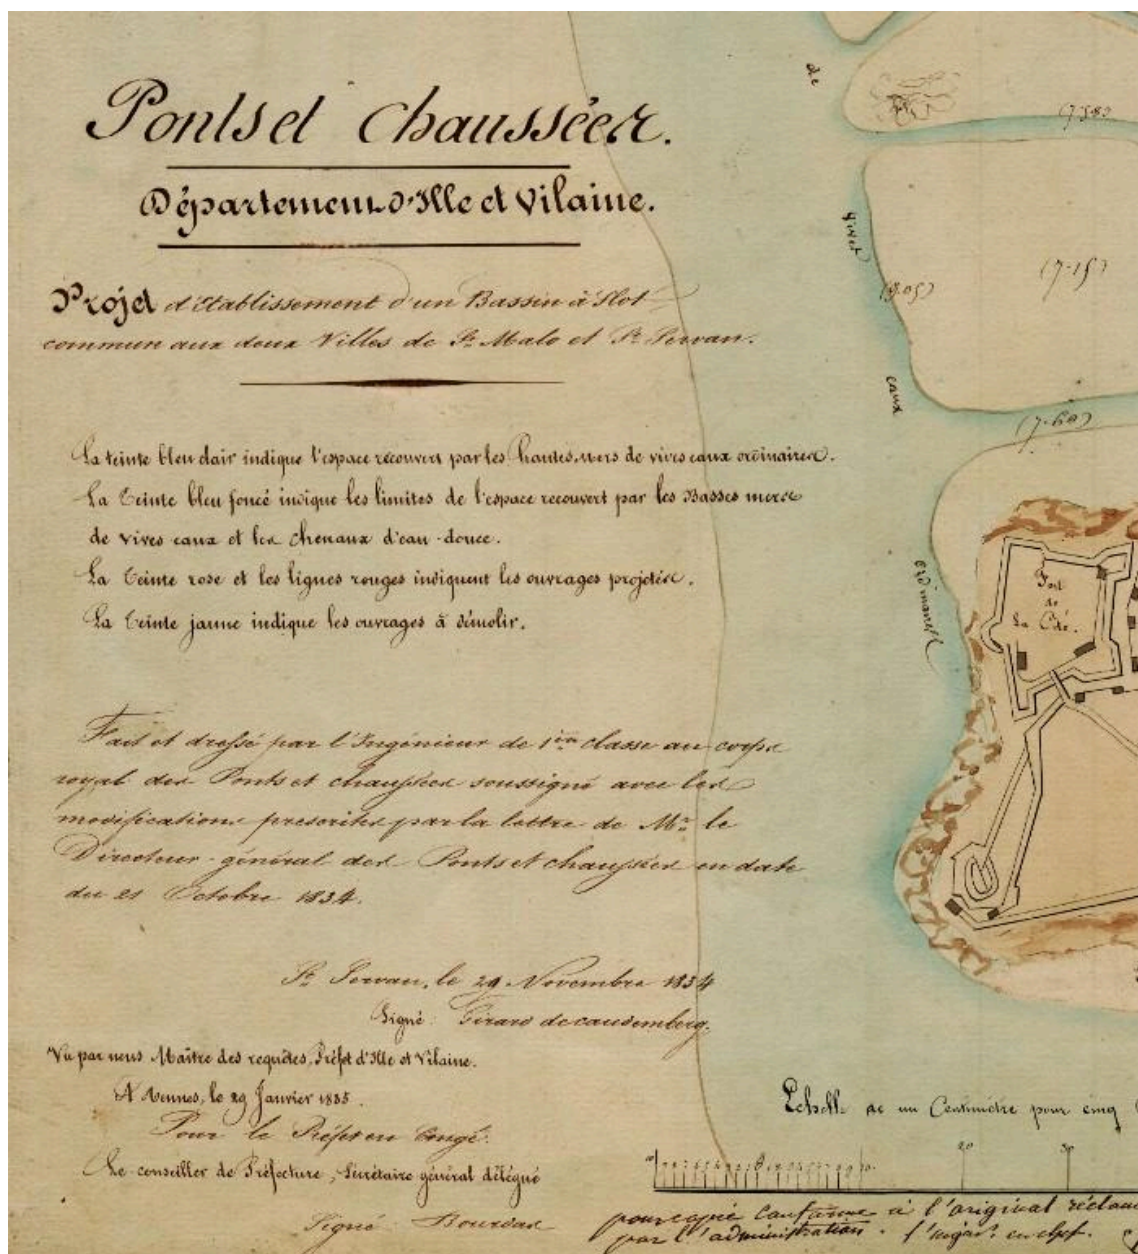 Ponts et chaussées.
Département d'Ille et Vilaine.
Projet d'Etablissement d'un Bassin à flot
commun aux deux Villes de St. Malo et St. Servan.
La teinte bleu clair indique l'espace recouvert par les hautes mers de vives eaux ordinaires.
La teinte bleu foncé indique les limites de l'espace recouvert par les Basses mers
de vives eaux et les chenaux d'eau-douce.
La teinte rose et les lignes rouges indiquent les ouvrages projetés.
La teinte jaune indique les ouvrages à démolir.
Fait et dressé par l'Ingénieur de 1ère classe au corps
royal des Ponts et chaussées soussigné avec les
modifications prescrites par la lettre de Mr. le
Directeur-général des Ponts et chaussées en date
du 21 Octobre 1834.
St. Servan, le 29 Novembre 1834
Signé: Girard de caudemberg.
Vu par nous Maître des requêtes, Préfet d'Ille et Vilaine.
A Rennes, le 29 Janvier 1835.
Pour le Préfet en Congé.
Le conseiller de Préfecture, Secrétaire général délégué
Signé: Bourdas
de
vives
eaux
ordinaires
(7.58)
(7.15)
(9.05)
(7.60)
Fort
de
La Cité.
Echelle de un Centimètre pour cinq
10
20
30
pour copie conforme à l'original
par l'administration. l'ingr. en chef.